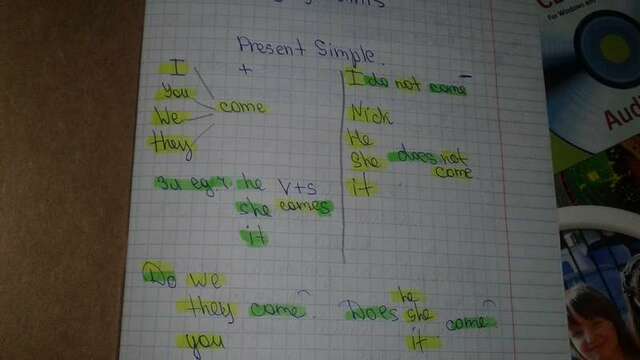 Present Simple.
+
I
You
We come
they
3л ед ч he V+s
she comes
it
−
I do not come
Nick
He
she does not
come
it
Do we
they come
you
he
Does she come
it
For Windows